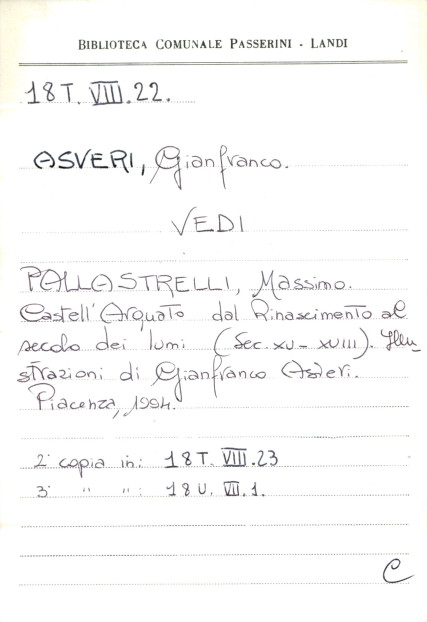 BIBLIOTECA COMUNALE PASSERINI - LANDI
18 T. VIII. 22.
ASVERI, Gianfranco.
VEDI
PALLASTRELLI, Massimo.
Castell'Arquato dal Rinascimento al
secolo dei lumi (Sec. XV - XVIII). Illu_
strazioni di Gianfranco Asveri.
Piacenza, 1994.
2ª copia in: 18 T. VIII. 23
3ª " ": 18 U. VII. 1.
C